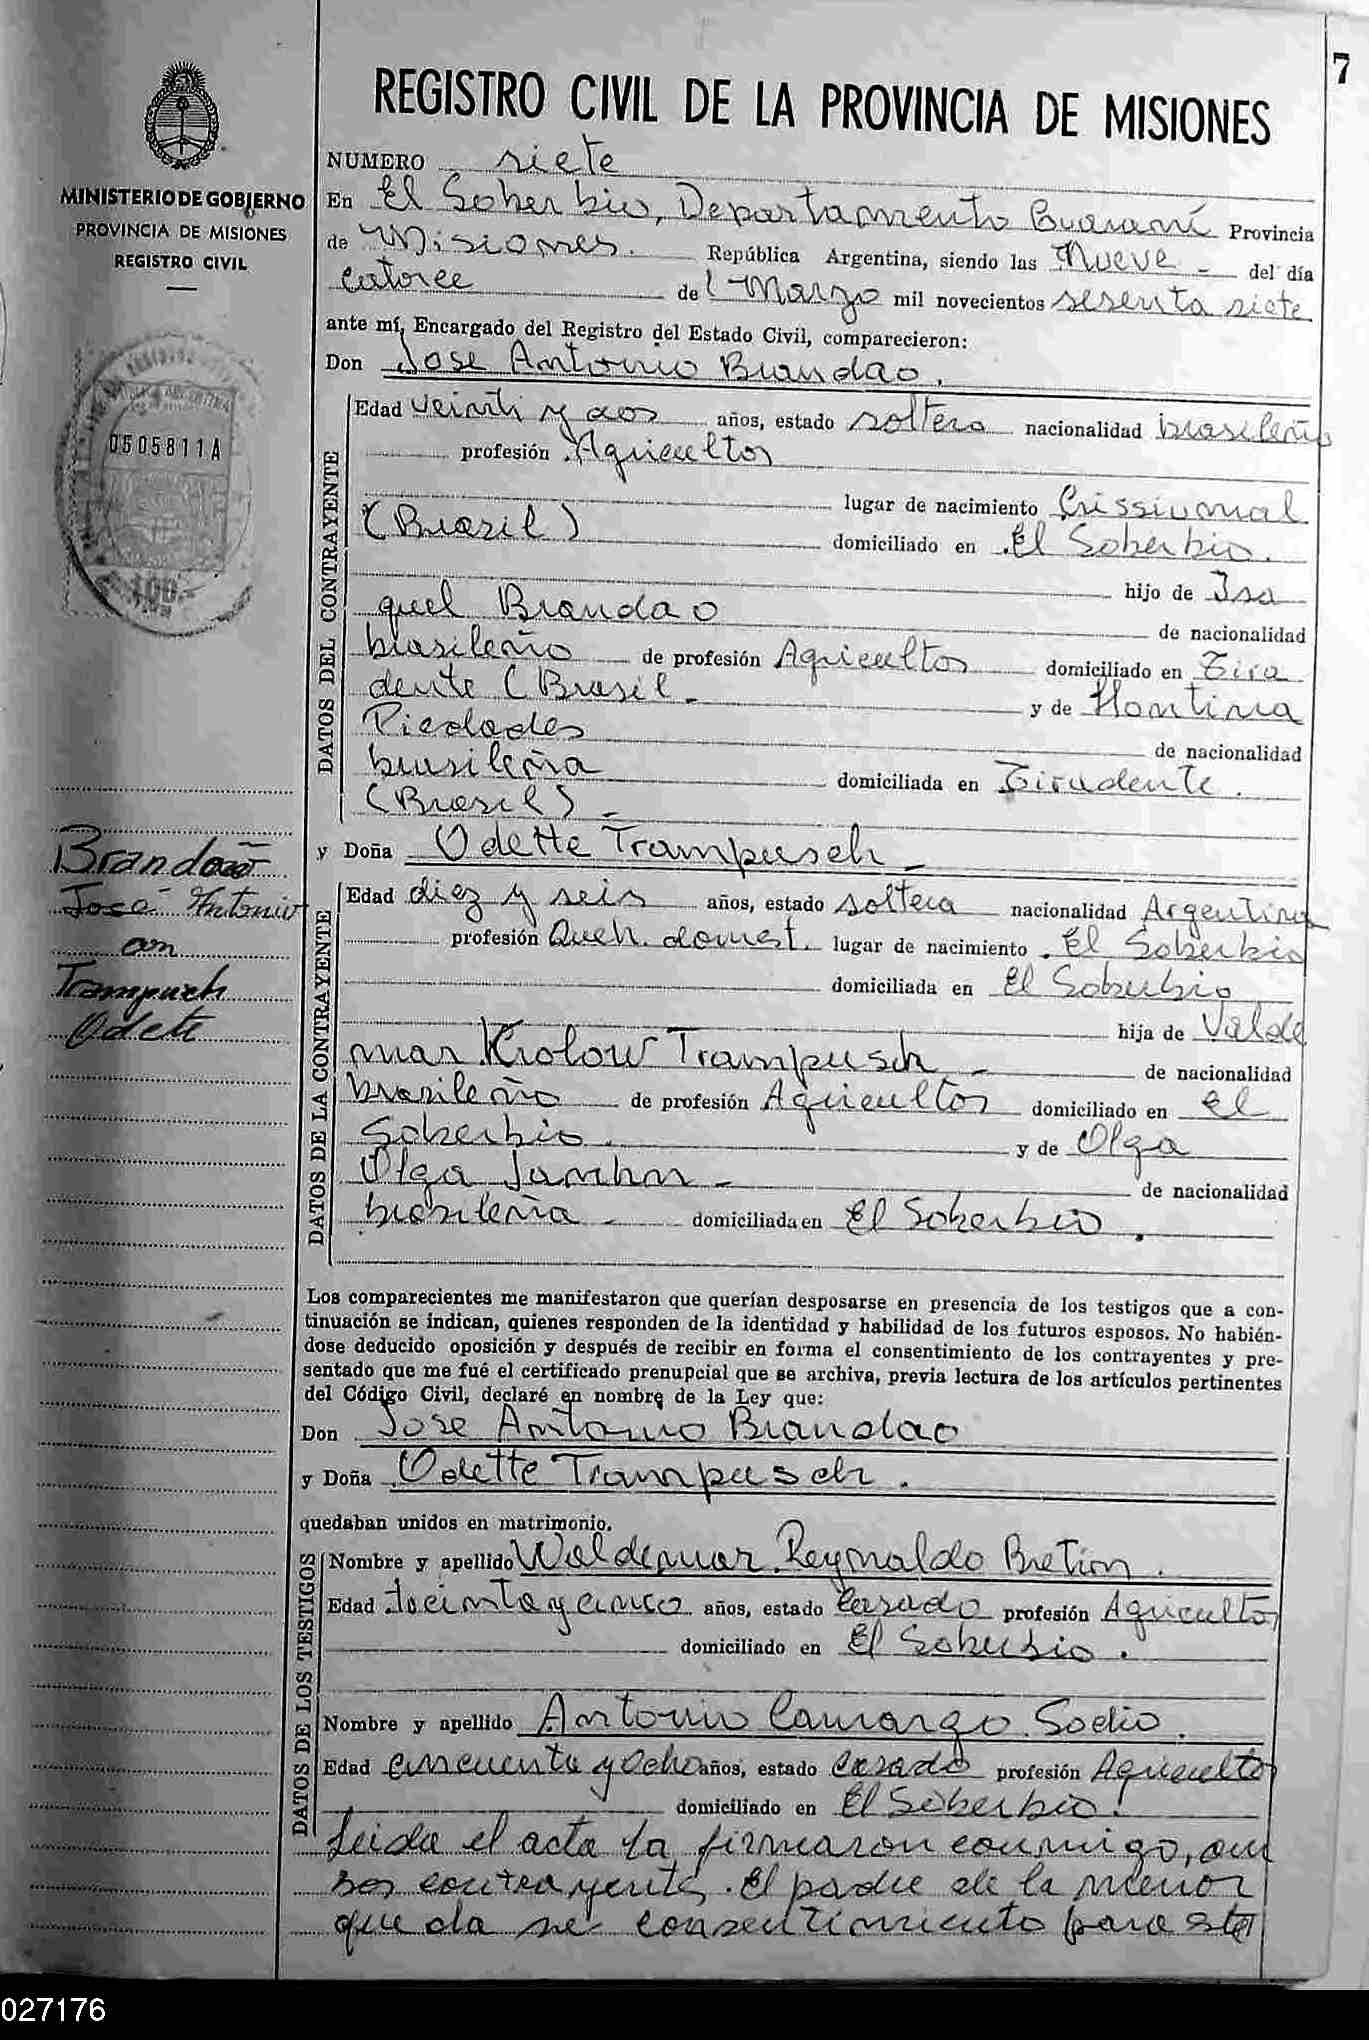 7
REGISTRO CIVIL DE LA PROVINCIA DE MISIONES
MINISTERIO DE GOBIERNO
PROVINCIA DE MISIONES
REGISTRO CIVIL
0505811A
100.-
NUMERO siete
En El Soberbio, Departamento Guaraní Provincia
de Misiones. República Argentina, siendo las Nueve - del día
catorce de Marzo mil novecientos sesenta siete
ante mí, Encargado del Registro del Estado Civil, comparecieron:
Don Jose Antonio Brandao.
DATOS DEL CONTRAYENTE
Edad veinti y dos años, estado soltero nacionalidad brasileño
profesión Agricultor
lugar de nacimiento Crissiumal
(Brasil) domiciliado en El Soberbio.
hijo de Isa
quel Brandao de nacionalidad
brasileño de profesión Agricultor domiciliado en Tira
dente (Brasil - y de Hontina
Piedades de nacionalidad
brasileña domiciliada en Tiradente.
(Brasil) -
y Doña Odette Trampusch -
Brandão
José Antonio
con
Trampuch
Odete
DATOS DE LA CONTRAYENTE
Edad diez y seis años, estado soltera nacionalidad Argentina
profesión Queh. domest. lugar de nacimiento El Soberbio
domiciliada en El Soberbio
hija de Valde
mar Krolow Trampusch - de nacionalidad
brasileño de profesión Agricultor domiciliado en El
Soberbio. y de Olga
Olga - de nacionalidad
brasileña - domiciliada en El Soberbio.
Los comparecientes me manifestaron que querían desposarse en presencia de los testigos que a con-
tinuación se indican, quienes responden de la identidad y habilidad de los futuros esposos. No habién-
dose deducido oposición y después de recibir en forma el consentimiento de los contrayentes y pre-
sentado que me fué el certificado prenupcial que se archiva, previa lectura de los artículos pertinentes
del Código Civil, declaré en nombre de la Ley que:
Don Jose Antonio Brandao
y Doña Odette Trampusch.
quedaban unidos en matrimonio.
DATOS DE LOS TESTIGOS
Nombre y apellido Waldemar Reynaldo Bretion.
Edad treinta y cinco años, estado Casado profesión Agricultor
domiciliado en El Soberbio.
Nombre y apellido Antonio Camargo Sodio.
Edad cincuenta y ocho años, estado casado profesión Agricultor
domiciliado en El Soberbio.
Leida el acta la firmaron conmigo, am
bos contrayentes. El padre de la menor
que da su consentimiento para este
027176